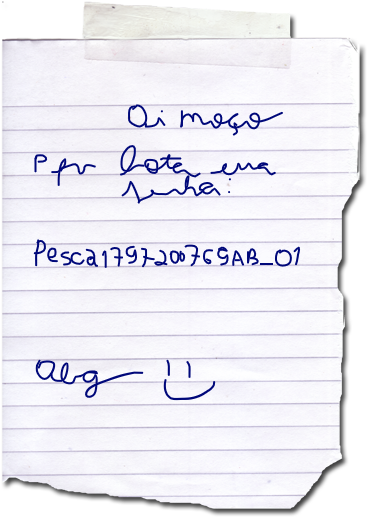 Oi moço
P fv bota essa
senha:
Pesca1797200769AB_01
abç